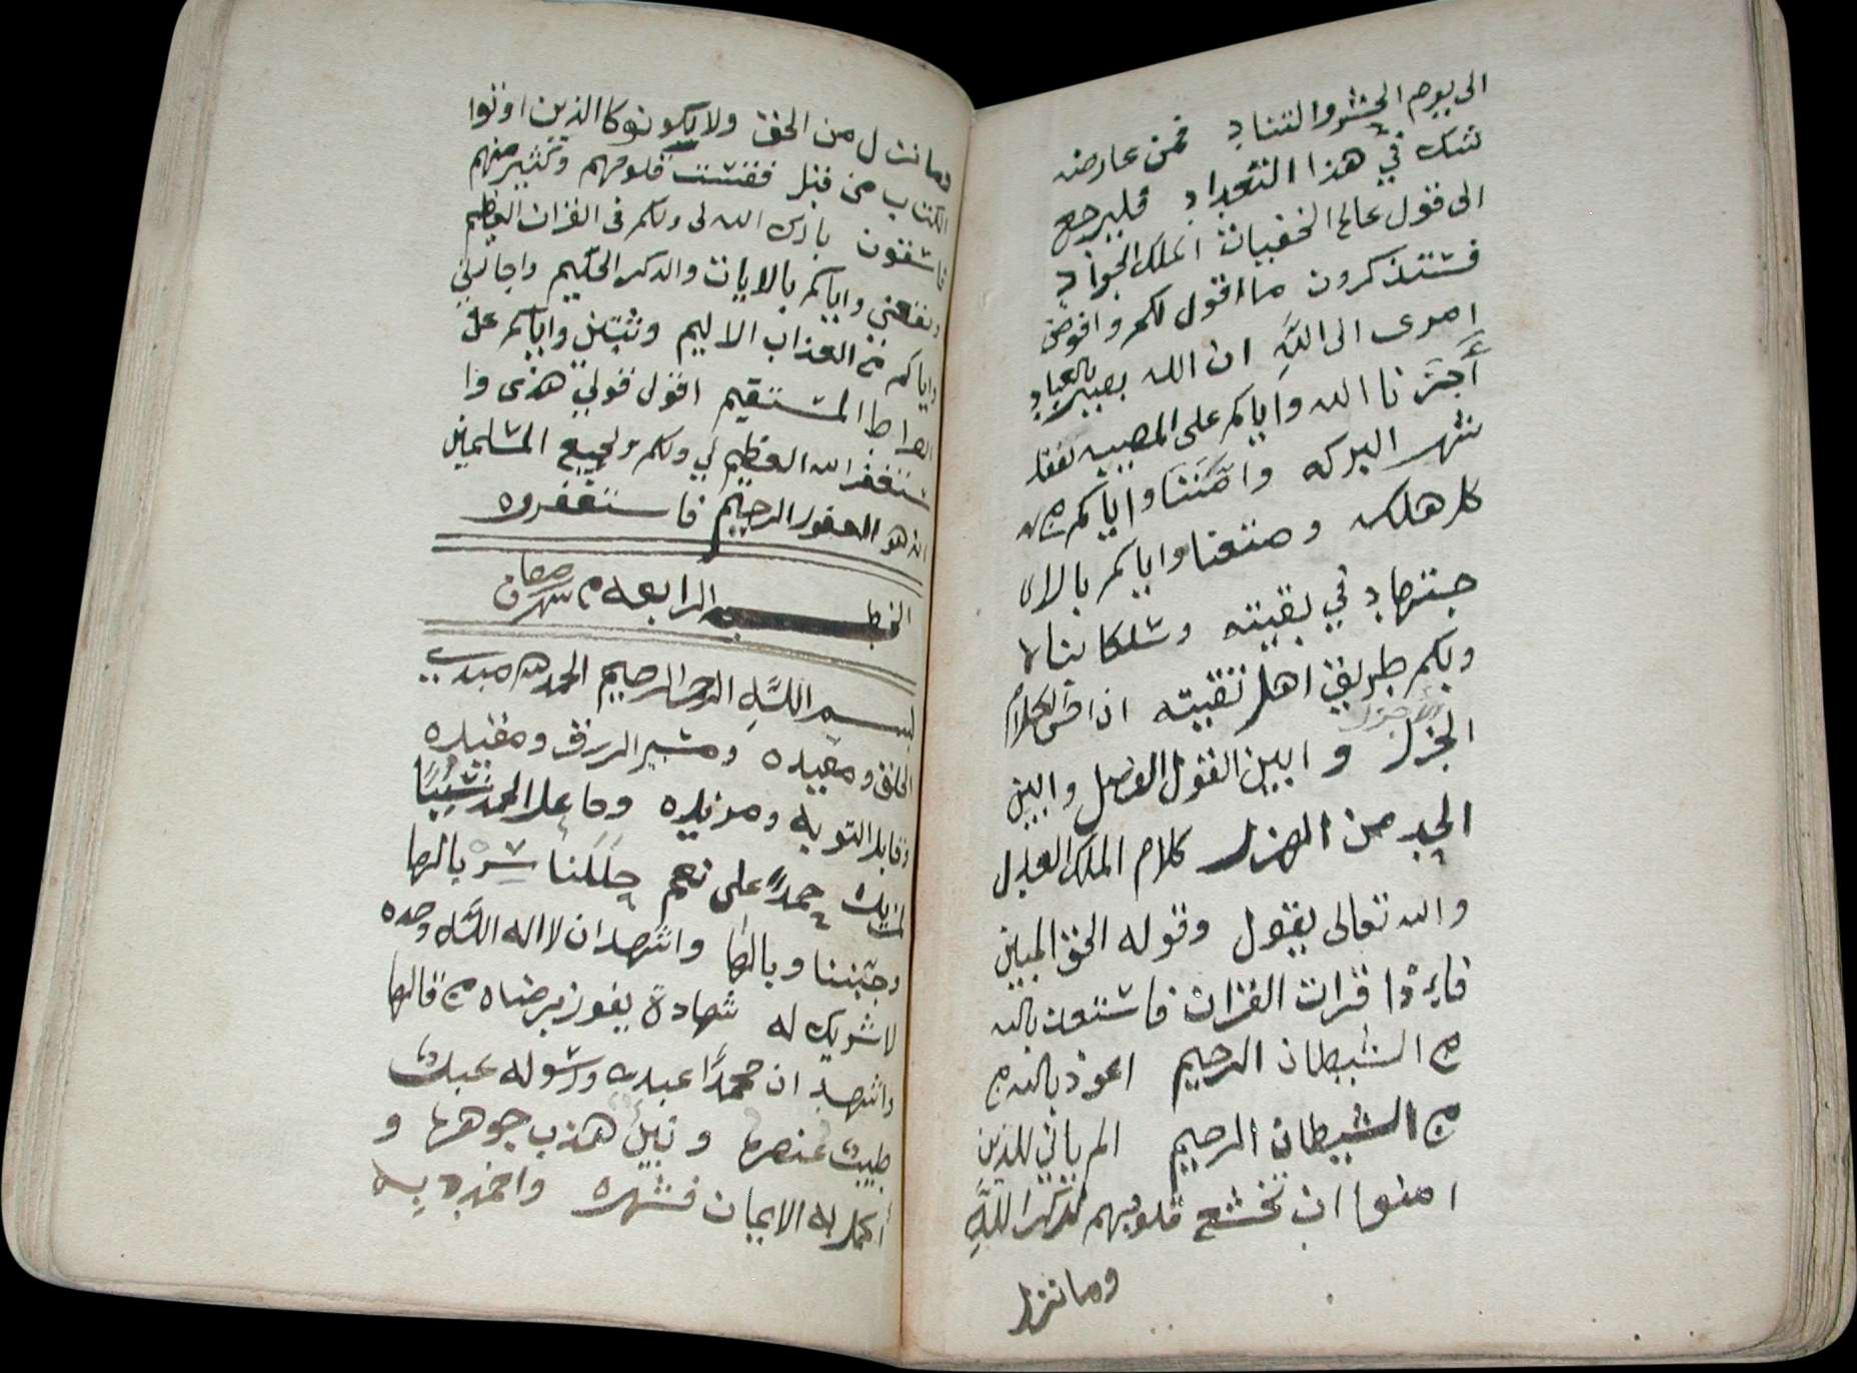 الى يوم الحشر والتناد فمن عارضه
شك في هذا التعداد فليرجع
الى قول عالم الخفيات الملك الجواد
فستذكرون ما اقول لكم وافوض
امرى الى اللَّهِ ان الله بصير بالعباد
أجَرَنا الله واياكم على المصيبه بفقد
شهر البركه وامّننا واياكم من
كل هلكه ومتعنا واياكم بالا
جتهاد في بقيته وسلك بنا
وبكم طريق اهل تقيته ان احسن الكلام
الجزل وابين القول الفصل وابين
الجد من الهزل كلام الملك العدل
والله تعالى يقول وقوله الحق المبين
فاءذا قرات القران فاستعذ بالله
من الشيطان الرجيم اعوذ بالله من
من الشيطان الرجيم الم يان للذين
امنوا ان تخشع قلوبهم لذكر اللَّهِ
وما نزل
وما نزل من الحق ولا يكونو كالذين اوتوا
الكتاب من قبل فقست قلوبهم وكثير منهم
فاسقون بارك الله لى ولكم فى القران العظيم
ونفعني واياكم بالايات والذكر الحكيم واجارني
واياكم من العذاب الاليم وثبتني واياكم على
الصراط المستقيم اقول قولي هذى وا
ستغفر الله العظيم لي ولكم ولجميع المسلمين
انه هو الغفور الرحيم فاستغفروه
الخطبه الرابعه من شهر رمضان
بسم اللَّهِ الرحمن الرحيم الحمد لله مبدي
الخلق ومعيده وميسر الرزق ومفيده
وقابل التوبه ومزيده وجاعل الحمد سَبَبًا
لمزيده حمدًا على نعم جلّلنا سربالها
وجنّبنا وبالها واشهد ان لا اله الا اللَّه وحده
لا شريك له شهادة يفوز برضاه من قالها
واشهد ان محمدًا عبده ورسوله عبدٌ
طيبٌ عنصره ونبيٌ هذب جوهره و
اكمل به الايمان فشهره واخمد به